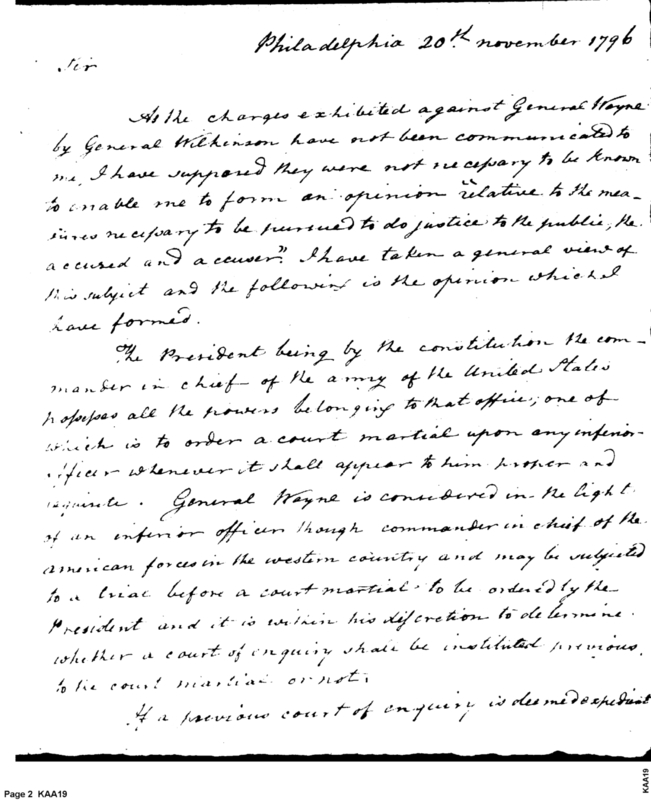 Philadelphia 20th. november 1796
Sir
As the charges exhibited against General Wayne
by General Wilkinson have not been communicated to
me, I have supposed they were not necessary to be known
to enable me to form an opinion "relative to the mea-
sures necessary to be pursued to do justice to the public, the
accused and accuser". I have taken a general view of
this subject and the following is the opinion which I
have formed.
The President being by the constitution the com-
mander in chief of the army of the United States
possesses all the powers belonging to that office; one of
which is to order a court martial upon any inferior
officer whenever it shall appear to him proper and
requisite. General Wayne is considered in the light
of an inferior officer though commander in chief of the
american forces in the western country and may be subjected
to a trial before a court martial to be ordered by the
President and it is within his discretion to determine
whether a court of enquiry shall be instituted previous
to the court martial or not.
If a previous court of enquiry is deemed expedient
Page 2 KAA19
KAA19